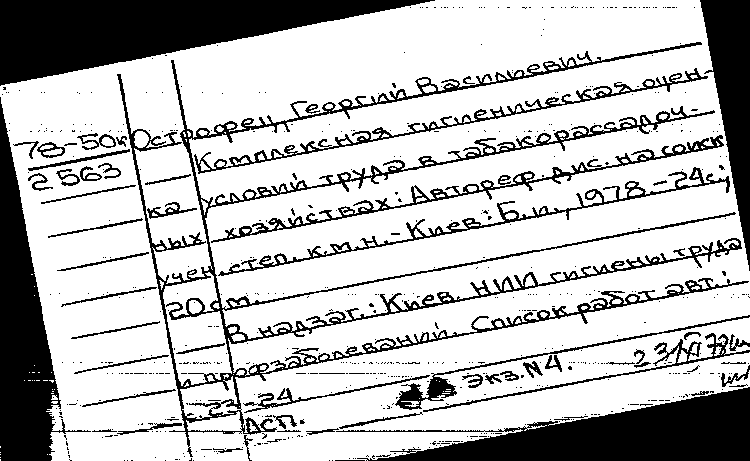 78-50к
2 563
Острофец, Георгий Васильевич.
Комплексная гигиеническая оцен-
ка условий труда в табакорассадоч-
ных хозяйствах: Автореф. дис. на соиск
учен. степ. к.м.н. - Киев: Б.и., 1978. - 24с.;
20см.
В надзаг.: Киев. НИИ гигиены труда
и профзаболеваний. Список работ авт.:
с. 23-24.
ДСП. Экз. N4.
23/XI 78